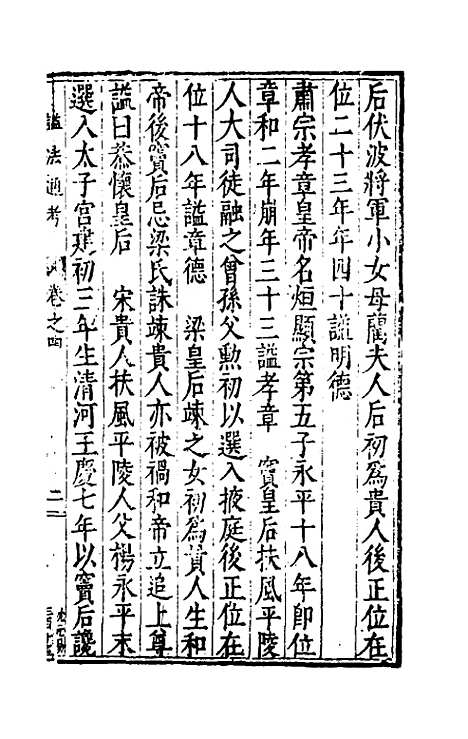 后伏波將軍小女母藺夫人后初爲貴人後正位在
位二十三年年四十謚明德
肅宗孝章皇帝名炟顯宗第五子永平十八年即位
章和二年崩年三十三謚孝章　竇皇后扶風平陵
人大司徒融之曾孫父勲初以選入掖庭後正位在
位十八年謚章德　梁皇后竦之女初爲貴人生和
帝後竇后忌梁氏誅竦貴人亦被禍和帝立追上尊
謚曰恭懷皇后　宋貴人扶風平陵人父楊永平末
選入太子宮建初三年生清河王慶七年以竇后讒
謚法通考　卷之四　二